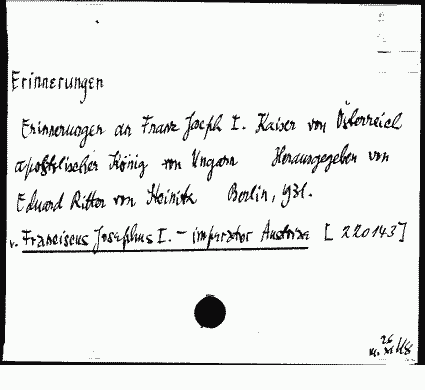 Erinnerungen
Erinnerungen an Franz Joseph I. Kaiser von Österreich
apostolischer König von Ungarn Herausgegeben von
Eduard Ritter von Steinitz Berlin, 1931.
v. Franciscus Josephus I. - imperator Austriae [220143]